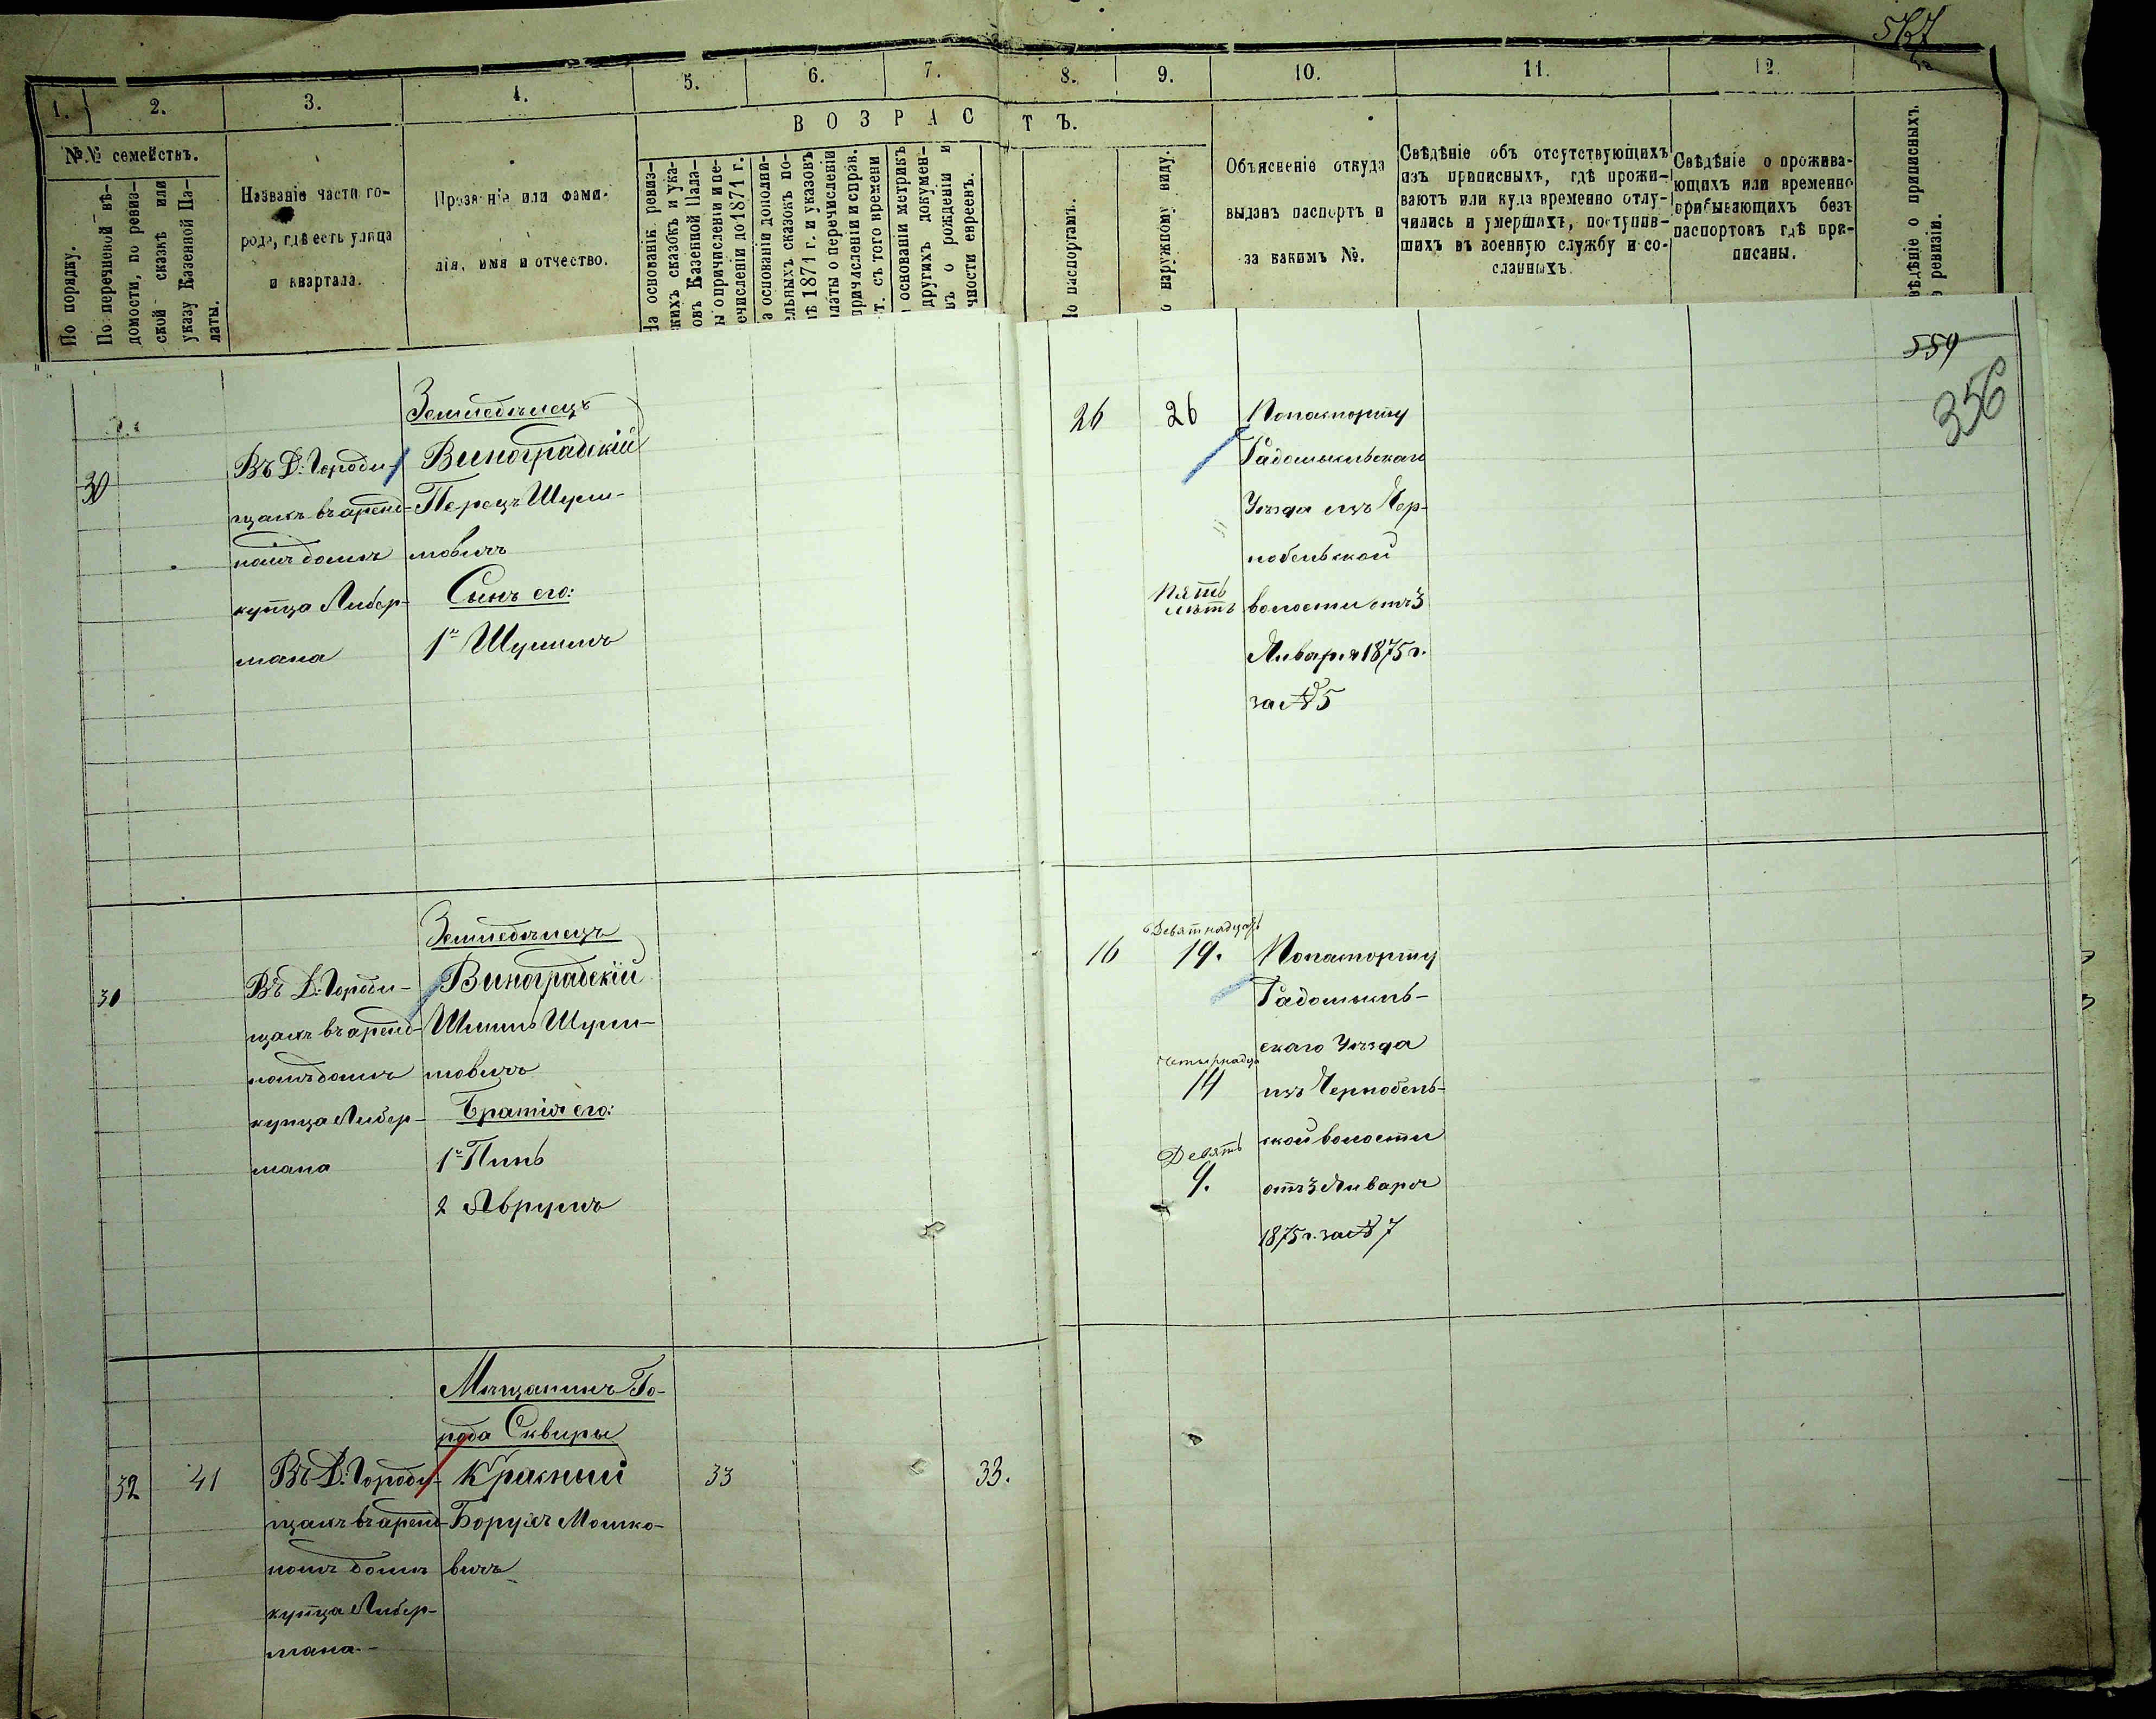 567
1. 2. 3. 4. 5. 6. 7. 8. 9. 10. 11. 12.
В О З Р А С Т Ъ.
№№ семействъ.
По порядку.
По перечневой вѣ-
домости, по ревиз-
ской сказкѣ или
указу Казенной Па-
латы.
Названіе части го-
рода, гдѣ есть улица
и квартала.
Прозваніе или фами-
лія, имя и отчество.
На основаніи ревиз-
скихъ сказокъ и ука-
овъ Казенной Пала-
ы о причисленіи и пе-
ечисленіи до 1871 г.
а основаніи дополни-
ельныхъ сказокъ по-
лѣ 1871 г. и указовъ
алаты о перечисленіи
причисленіи и справ.
т. съ того времени
основаніи метрикъ
другихъ докумен-
въ о рожденіи и
чности евреевъ.
По паспортамъ.
о наружному виду.
Объясненіе откуда
выданъ паспортъ и
за какимъ №.
Свѣдѣніе объ отсутствующихъ
изъ приписныхъ, гдѣ прожи-
ваютъ или куда временно отлу-
чились и умершихъ, поступив-
шихъ въ военную службу и со-
сланныхъ.
Свѣдѣніе о прожива-
ющихъ или временно
прибывающихъ безъ
паспортовъ гдѣ при-
писаны.
вѣдѣніе о приписныхъ
о ревизіи.
559
356
30
Въ Д: Городи-
щахъ въ аренд-
номъ домѣ
купца Либер-
мана
Земледѣлецъ
Виноградскій
Перецъ Шули-
мовичъ
Сынъ его:
1й Шулимъ
26
26
Пять
лѣтъ
По паспорту
Радомыльскаго
Уѣзда изъ Чер-
нобыльской
волости отъ 3
Января 1875 г.
за № 5
31
Въ Д: Городи-
щахъ въ аренд-
номъ домѣ
купца Либер-
мана
Земледѣлецъ
Виноградскій
Шули-
мовичъ
Братія его:
1й Пинь
2 Аврумъ
16
Девятнадцать
19.
14
Девять
9.
По паспорту
Радомыль-
скаго Уѣзда
изъ Чернобыль-
ской волости
отъ 3 Января
1875 г. за № 7
32
41
Въ Д: Городи-
щахъ въ аренд-
номъ домѣ
купца Либер-
мана.-
Мѣщанинъ Го-
рода Сквиры
Красный
Борухъ Мошко-
вичъ
33
33.